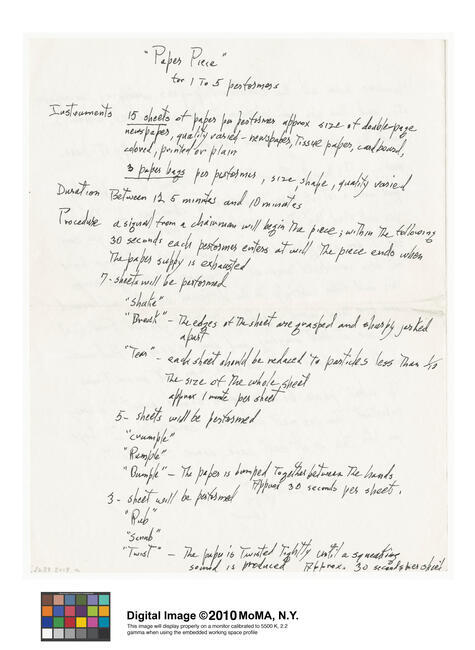 "Paper Piece"
for 1 To 5 performers
Instruments 15 sheets of paper per performer approx size of double-page
newspaper, quality varied - newspaper, Tissue paper, cardboard,
colored, printed or plain
3 paper bags per performer, size shape, quality varied
Duration Between 12 5 minutes and 10 minutes
Procedure a signal from a chairman will begin the piece; within the following
30 seconds each performer enters at will The piece ends when
The paper supply is exhausted
7-sheets will be performed
"Shake"
"Break" - The edges of the sheet are grasped and sharply jerked
apart
"Tear" - each sheet should be reduced To particles less Than 1/10
The size of The whole sheet
approx 1 minute per sheet
5- sheets will be performed
"crumple"
"Rumple"
"Bumple" - The paper is bumped Together between The hands
Approx 30 seconds per sheet.
3- sheet will be performed
"Rub"
"Scrub"
"Twist" - The paper is Twisted Tightly until a squeaking
sound is produced Approx. 30 seconds per sheet
Digital Image ©2010 MoMA, N.Y.
This image will display properly on a monitor calibrated to 5500 K, 2.2
gamma when using the embedded working space profile